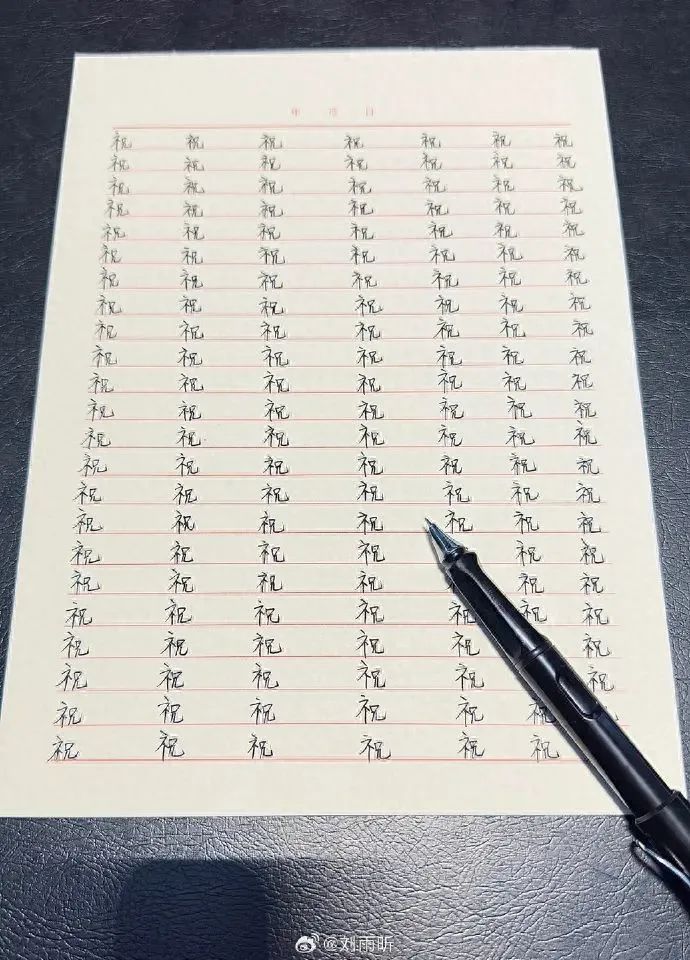 年 月 日
祝 祝 祝 祝 祝 祝 祝
祝 祝 祝 祝 祝 祝 祝
祝 祝 祝 祝 祝 祝 祝
祝 祝 祝 祝 祝 祝 祝
祝 祝 祝 祝 祝 祝 祝
祝 祝 祝 祝 祝 祝 祝
祝 祝 祝 祝 祝 祝 祝
祝 祝 祝 祝 祝 祝 祝
祝 祝 祝 祝 祝 祝 祝
祝 祝 祝 祝 祝 祝 祝
祝 祝 祝 祝 祝 祝 祝
祝 祝 祝 祝 祝 祝 祝
祝 祝 祝 祝 祝 祝 祝
祝 祝 祝 祝 祝 祝 祝
祝 祝 祝 祝 祝 祝 祝
祝 祝 祝 祝 祝 祝 祝
祝 祝 祝 祝 祝 祝
祝 祝 祝 祝 祝 祝
祝 祝 祝 祝 祝 祝 祝
祝 祝 祝 祝 祝 祝
祝 祝 祝 祝 祝 祝
祝 祝 祝 祝 祝 祝
祝 祝 祝 祝 祝 祝
@刘雨昕